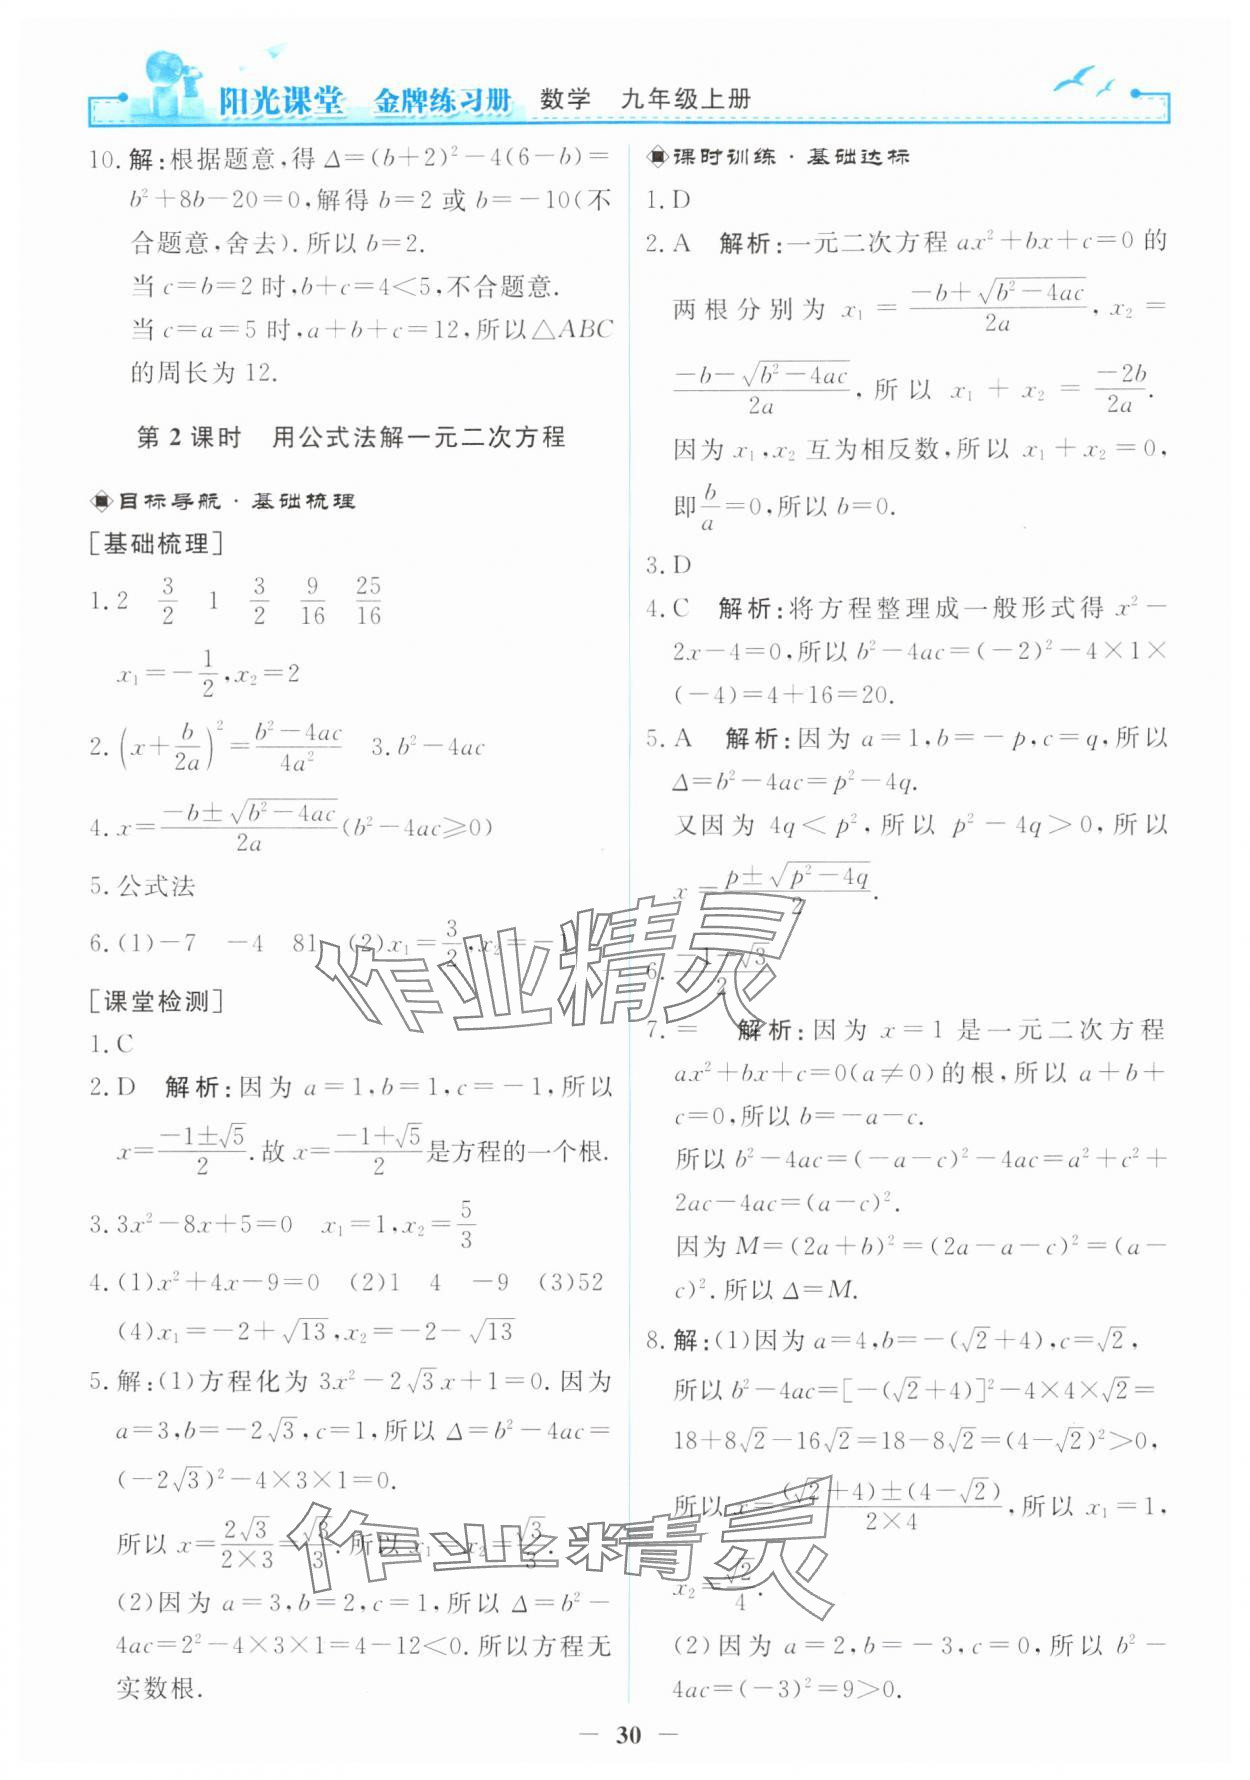 阳光课堂 金牌练习册 数学 九年级上册
10. 解:根据题意,得 Δ=(b+2)²-4(6-b)=
b²+8b-20=0,解得 b=2 或 b=-10(不
合题意,舍去).所以 b=2.
当 c=b=2 时,b+c=4<5,不合题意.
当 c=a=5 时,a+b+c=12,所以△ABC
的周长为 12.
第 2 课时 用公式法解一元二次方程
目标导航·基础梳理
[基础梳理]
1. 2 3/2 1 3/2 9/16 25/16
x₁=-1/2,x₂=2
2. (x+b/2a)²=(b²-4ac)/4a² 3. b²-4ac
4. x=(-b±√(b²-4ac))/2a(b²-4ac≥0)
5. 公式法
6. (1)-7 -4 81 (2)x₁=3/2,x₂=-1
[课堂检测]
1. C
2. D 解析:因为 a=1,b=1,c=-1,所以
x=(-1±√5)/2.故 x=(-1+√5)/2 是方程的一个根.
3. 3x²-8x+5=0 x₁=1,x₂=5/3
4. (1)x²+4x-9=0 (2)1 4 -9 (3)52
(4)x₁=-2+√13,x₂=-2-√13
5. 解:(1)方程化为 3x²-2√3x+1=0.因为
a=3,b=-2√3,c=1,所以 Δ=b²-4ac=
(-2√3)²-4×3×1=0.
所以 x=2√3/(2×3)=√3/3.所以 x₁=x₂=√3/3.
(2)因为 a=3,b=2,c=1,所以 Δ=b²-
4ac=2²-4×3×1=4-12<0.所以方程无
实数根.
课时训练·基础达标
1. D
2. A 解析:一元二次方程 ax²+bx+c=0 的
两根分别为 x₁=(-b+√(b²-4ac))/2a,x₂=
(-b-√(b²-4ac))/2a,所以 x₁+x₂=-2b/2a.
因为 x₁,x₂ 互为相反数,所以 x₁+x₂=0,
即 b/a=0,所以 b=0.
3. D
4. C 解析:将方程整理成一般形式得 x²-
2x-4=0,所以 b²-4ac=(-2)²-4×1×
(-4)=4+16=20.
5. A 解析:因为 a=1,b=-p,c=q,所以
Δ=b²-4ac=p²-4q.
又因为 4q<p²,所以 p²-4q>0,所以
x=(p±√(p²-4q))/2.
6. (-1-√3)/2
7. = 解析:因为 x=1 是一元二次方程
ax²+bx+c=0(a≠0)的根,所以 a+b+
c=0,所以 b=-a-c.
所以 b²-4ac=(-a-c)²-4ac=a²+c²+
2ac-4ac=(a-c)².
因为 M=(2a+b)²=(2a-a-c)²=(a-
c)².所以 Δ=M.
8. 解:(1)因为 a=4,b=-(√2+4),c=√2,
所以 b²-4ac=[-(√2+4)]²-4×4×√2=
18+8√2-16√2=18-8√2=(4-√2)²>0,
所以 x=((√2+4)±(4-√2))/(2×4),所以 x₁=1,
x₂=√2/4.
(2)因为 a=2,b=-3,c=0,所以 b²-
4ac=(-3)²=9>0.
作业精灵
作业精灵
— 30 —